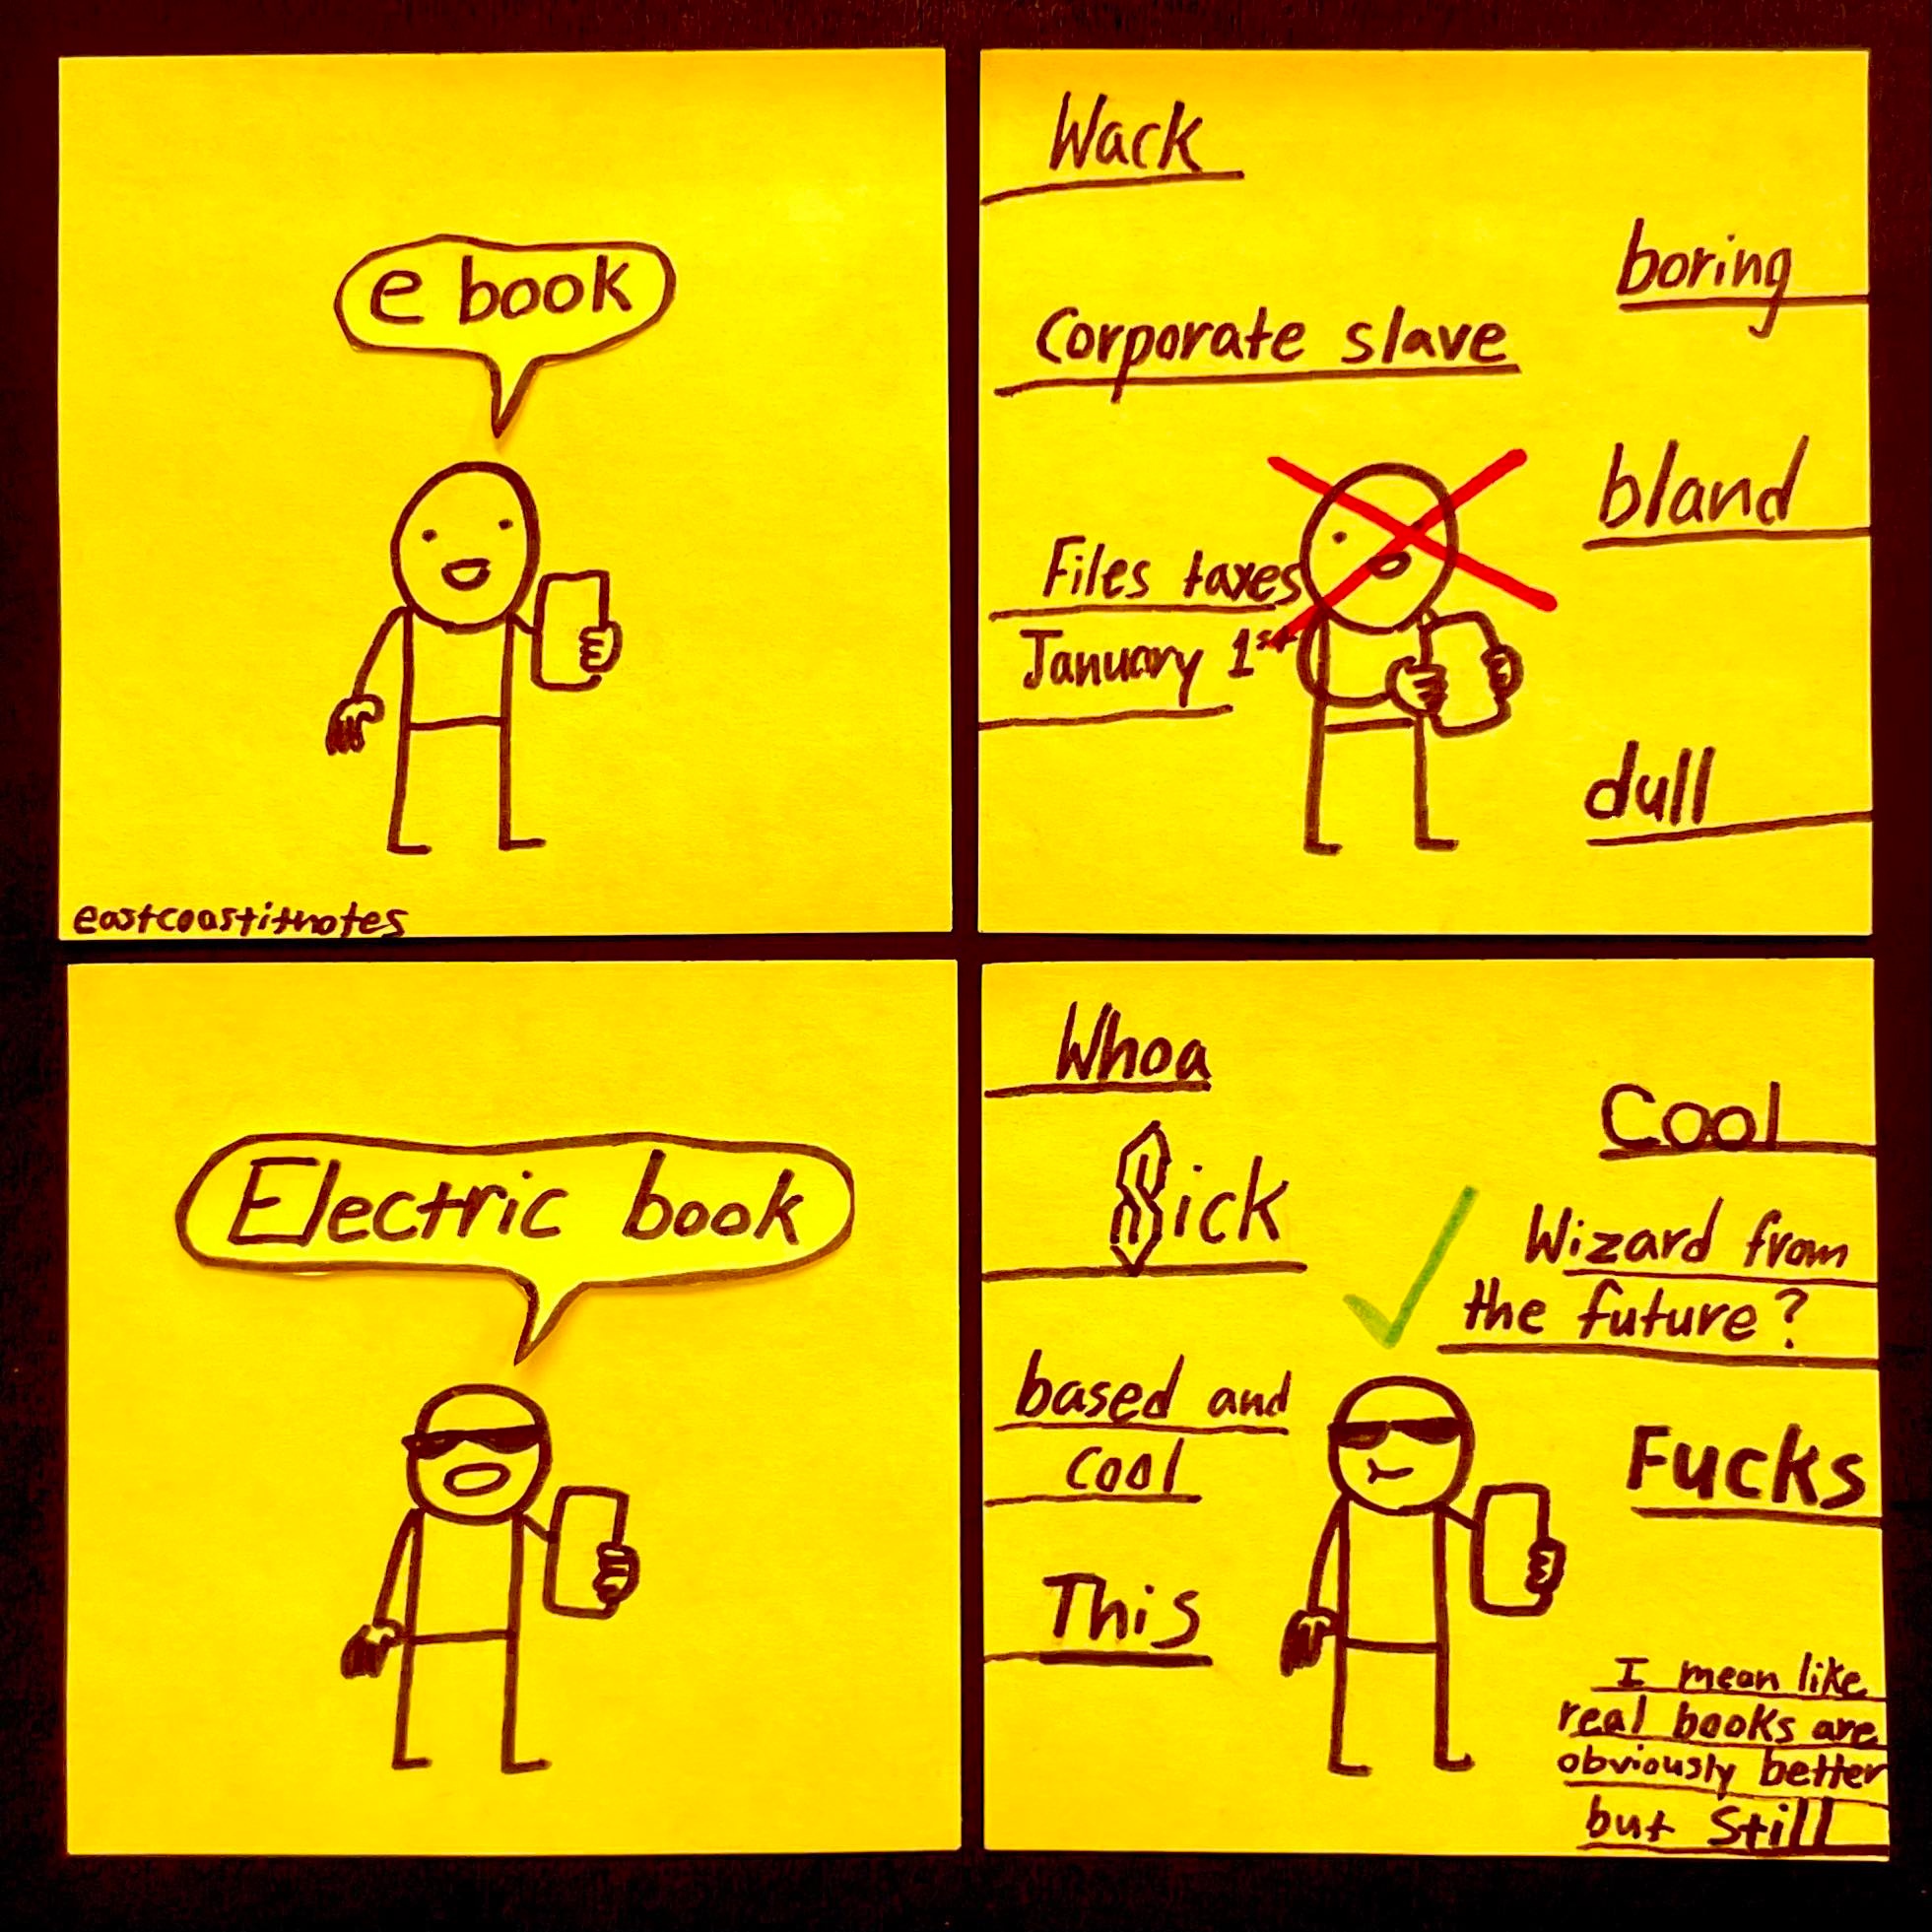 e book
eastcoastitnotes
Wack
boring
Corporate slave
bland
Files taxes
January 1st
dull
Electric book
Whoa
Cool
Sick
Wizard from
the future?
based and
cool
Fucks
This
I mean like
real books are
obviously better
but still